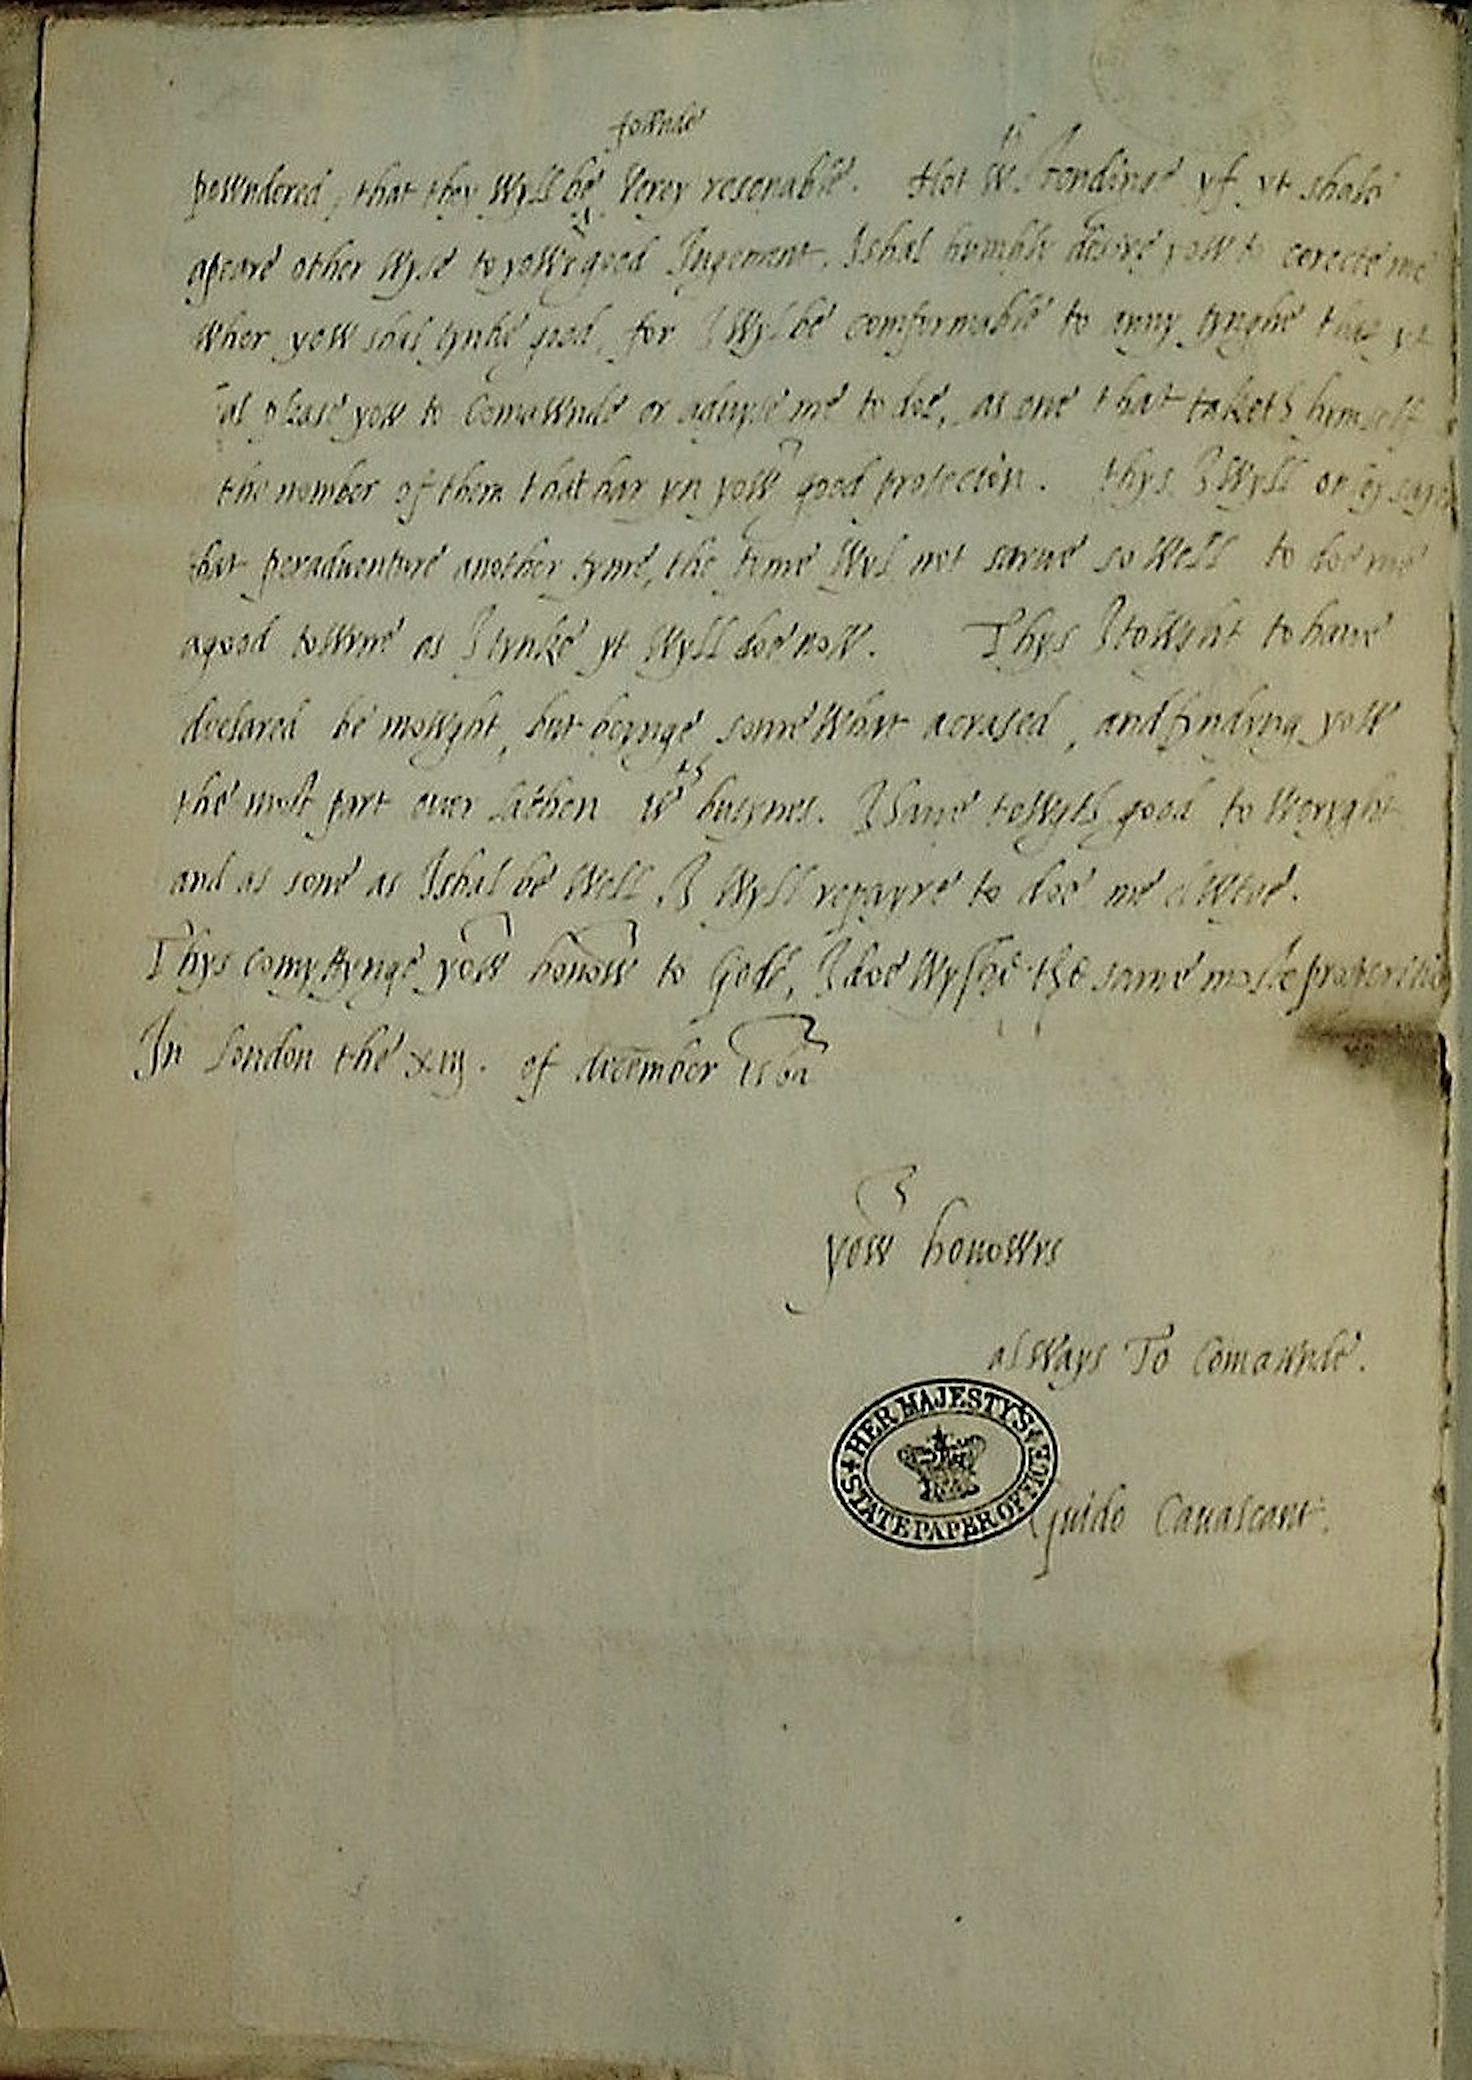 fownde
powndered, that they wyll be verey resonable. Not wth stondinge yf yt shale
apeare other wyse to yowr good Jugemant. I shal humble desire yow to corecte me
wher yow shal tynke good, for I wyl be comformable to anny tynghe that yt
please yow to comawnde or aduyse me to doe, as one that taketh himself
the nomber of them that har yn yowr good protection. thys I wyll only saye
that peraduenture another tyme, the time wyl not sarue so well to doe me
a good towrne as I tynke yt wyll doe now. Thys I towght to haue
declared be mowght, but beynge some what acrased, and findyng yow
the most part ouer laden wth busynes. I haue towght good to woryght
and as sone as I shal be well I wyll repayre to doe me
Thys comyttynge yowr honowr to Gode, I doe wyshe the same moste
In London the xiij. of december 1562
yowr honowrs
always To Comawnde.
HER MAJESTY'S STATE PAPER OFFICE
Guido Caualcant.